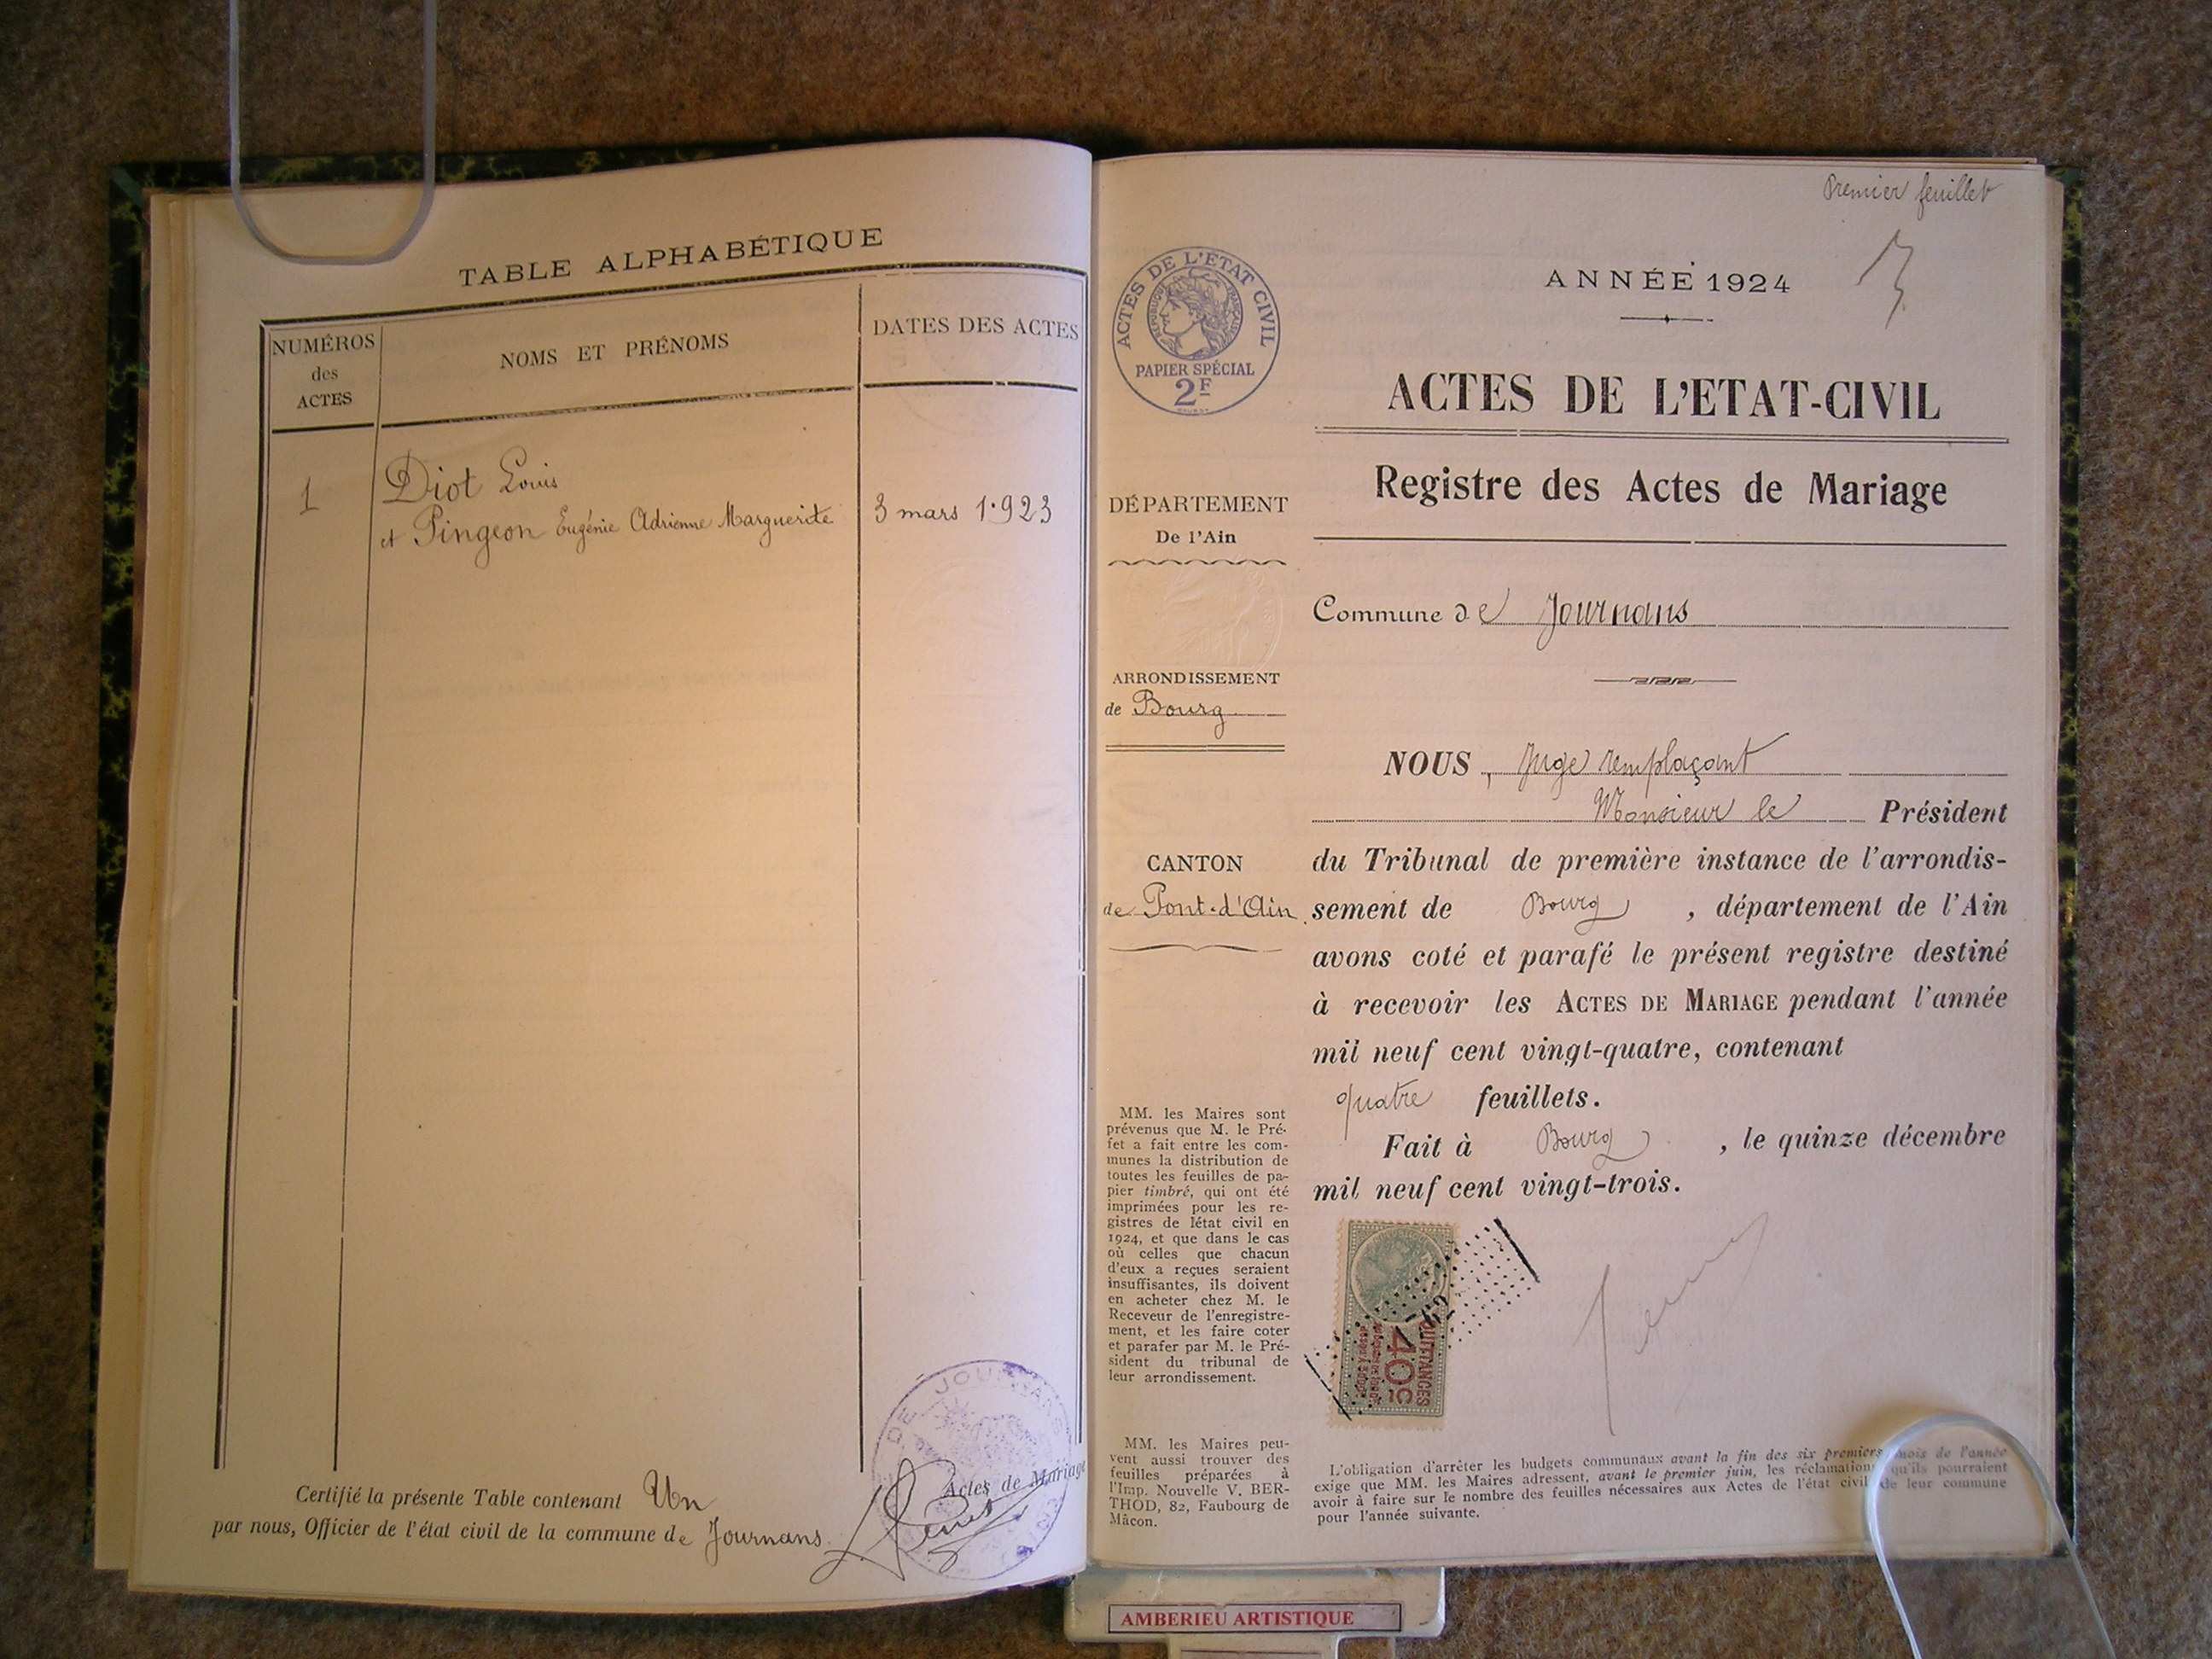 TABLE ALPHABÉTIQUE
NUMÉROS
des
ACTES
NOMS ET PRÉNOMS
DATES DES ACTES
1
Diot Louis
et Pingeon Eugénie Adrienne Marguerite
3 mars 1923
DE JOURNANS
Actes de Mariage
Certifié la présente Table contenant Un
par nous, Officier de l'état civil de la commune de Journans.
Premier feuillet
ACTES DE L'ETAT CIVIL
RÉPUBLIQUE FRANÇAISE
PAPIER SPÉCIAL
2F
ANNÉE 1924
ACTES DE L'ETAT-CIVIL
Registre des Actes de Mariage
DÉPARTEMENT
De l'Ain
Commune de Journans
ARRONDISSEMENT
de Bourg
CANTON
de Pont-d'Ain
NOUS, Juge remplaçant
Monsieur le Président
du Tribunal de première instance de l'arrondis-
sement de Bourg, département de l'Ain
avons coté et parafé le présent registre destiné
à recevoir les ACTES DE MARIAGE pendant l'année
mil neuf cent vingt-quatre, contenant
quatre feuillets.
Fait à Bourg, le quinze décembre
mil neuf cent vingt-trois.
MM. les Maires sont
prévenus que M. le Pré-
fet a fait entre les com-
munes la distribution de
toutes les feuilles de pa-
pier timbré, qui ont été
imprimées pour les re-
gistres de létat civil en
1924, et que dans le cas
où celles que chacun
d'eux a reçues seraient
insuffisantes, ils doivent
en acheter chez M. le
Receveur de l'enregistre-
ment, et les faire coter
et parafer par M. le Pré-
sident du tribunal de
leur arrondissement.
QUITTANCES
40c
MM. les Maires peu-
vent aussi trouver des
feuilles préparées à
l'Imp. Nouvelle V. BER-
THOD, 82, Faubourg de
Mâcon.
L'obligation d'arrêter les budgets communaux avant la fin des six premiers mois de l'année
exige que MM. les Maires adressent, avant le premier juin, les réclamations qu'ils pourraient
avoir à faire sur le nombre des feuilles nécessaires aux Actes de l'état civil de leur commune
pour l'année suivante.
AMBERIEU ARTISTIQUE